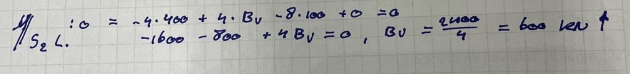 S₂ L. : 0 = -4·400 + 4·Bv - 8·100 + 0 = 0
-1600 - 800 + 4Bv = 0, Bv = 2400/4 = 600 kN ↑